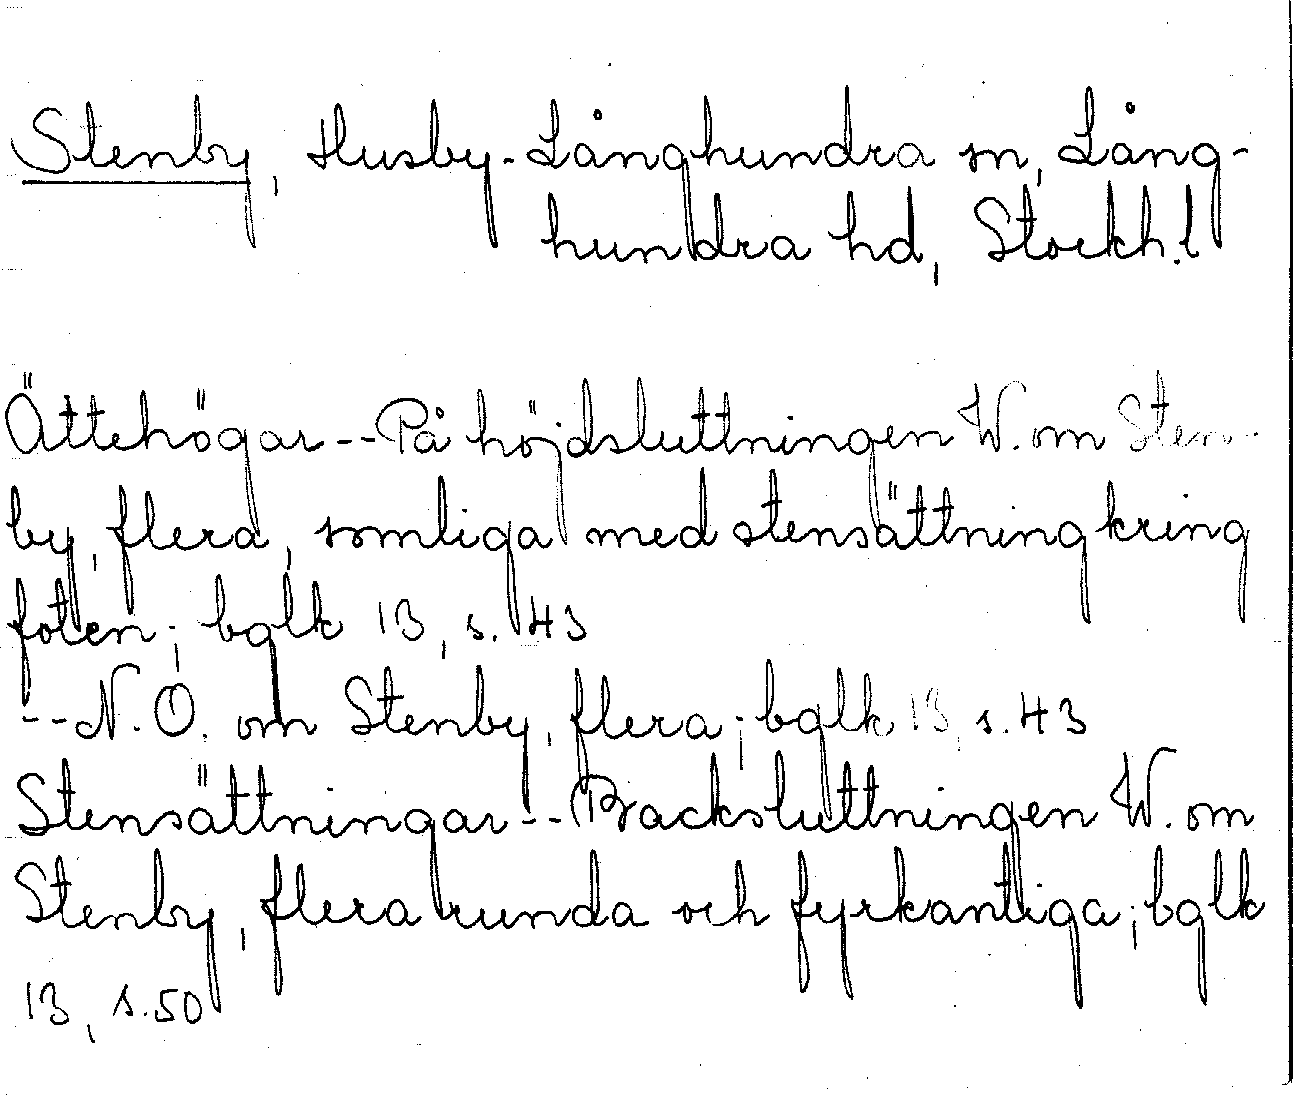 Stenby, Husby-Långhundra sn, Lång-
hundra hd, Stockh.l
Ättehögar--På höjdsluttningen W. om Sten-
by, flera, somliga med stensättning kring
foten; bglk 13, s. 43
--N.O. om Stenby, flera; bglk 13, s. 43
Stensättningar--Backsluttningen W. om
Stenby, flera runda och fyrkantiga; bglk
13, s. 50